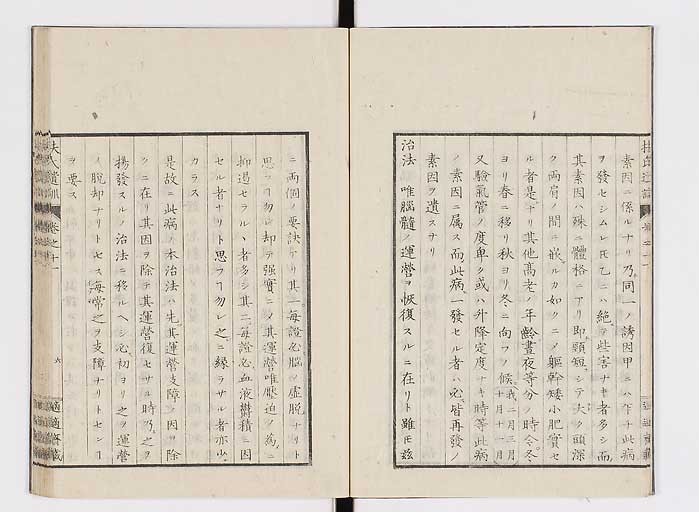 素因ニ係ルナリ乃同一ノ誘因甲ニハ乍チ此病
ヲ發セシムレ𪜈乙ニハ絶ヲ些害ナキ者多シ而
其素因ハ殊ニ體格ニアリ即頸短シテ大ク頭深
ク両肩ノ間ニ嵌ルカ如クニメ軀幹矮小肥實セ
ル者是ナリ其他高老ノ年齢晝夜等分ノ時令冬
ヨリ春ニ移リ秋ヨリ冬ニ向フノ候或二月三月十月十一月
又驗氣管ノ度卑ク或ハ升降定度ナキ時等此病
ノ素因ニ属ス而此病一發セル者ハ必皆再發ノ
素因ヲ遺スナリ
治法 唯腦髓ノ運營ヲ恢復スルニ在リト雖𪜈茲
ニ両個ノ要訣アリ其一毎證必腦ノ虚脱ナリト
思フヿ勿レ却テ强實ニメ其運營唯壓迫ノ為ニ
抑遏セラルヽ者多シ其二毎證必血液欝積ニ因
セル者ナリト思フヿ勿レ之ニ縁ラサル者亦少
カラス
是故ニ此病ノ本治法ハ先其運營支障ノ因ヲ除
クニ在リ其因ヲ除テ其運營復セサル時乃之ヲ
揚發スルノ治法ニ移ルヘシ必初ヨリ之ヲ運營
ノ脱却ナリトセス毎常之ヲ支障ナリトセンヿ
ヲ要ス
扶氏遺訓
卷之十一
六
適適齋藏